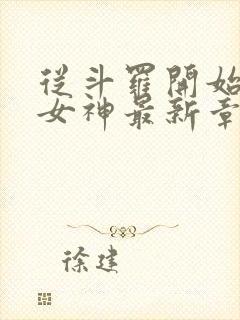 從斗羅開始
女神最新章
徐建